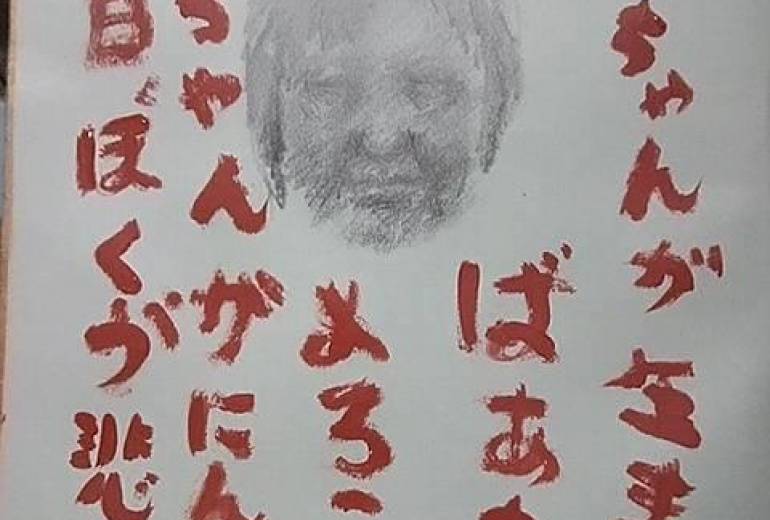 ちゃんがさま
ばあ
めろ
ちゃんがにん
日ぼくが悲